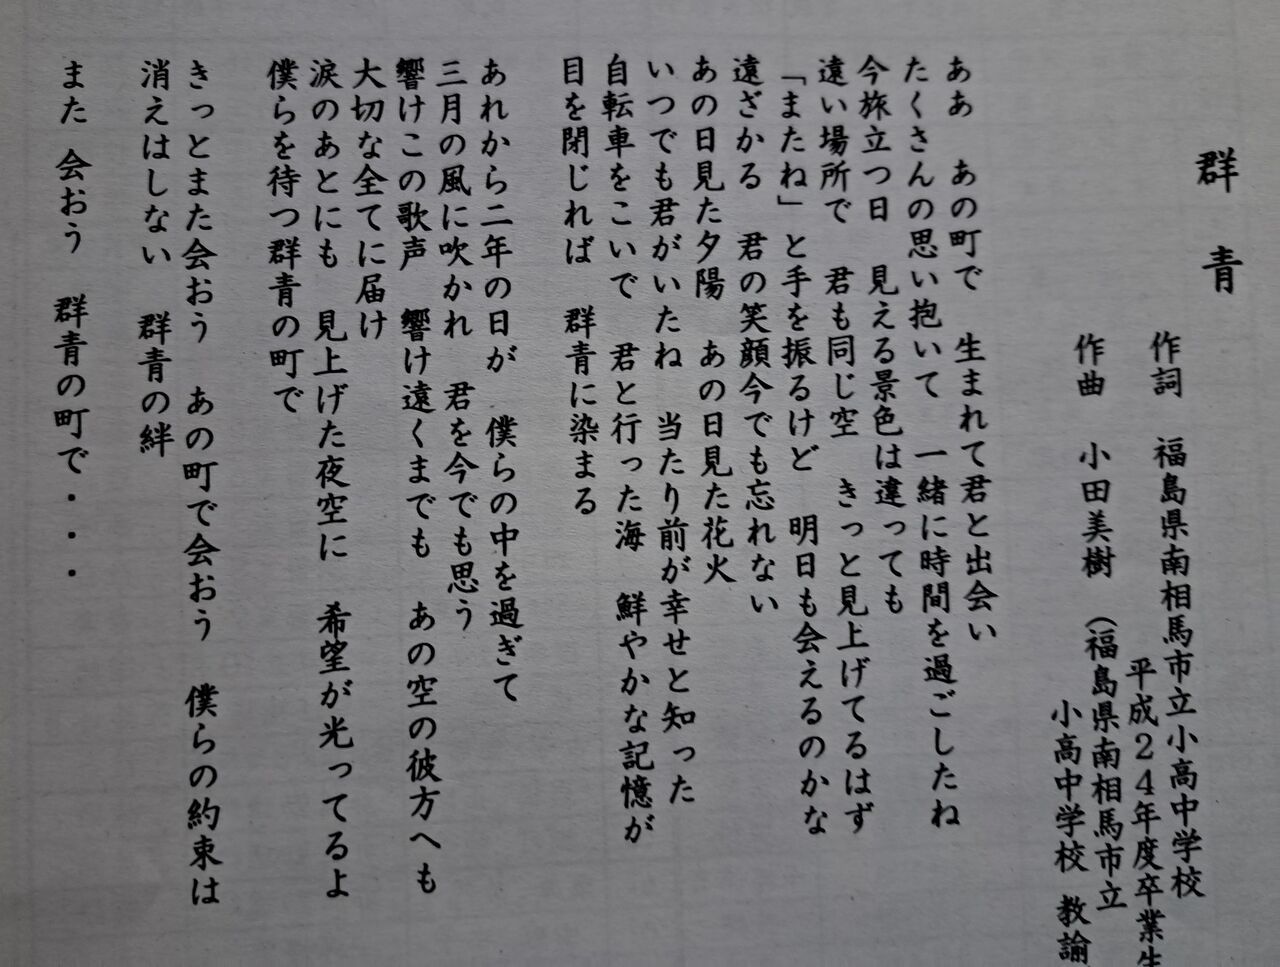 群青
作詞 福島県南相馬市立小高中学校
平成24年度卒業生
作曲 小田美樹 (福島県南相馬市立
小高中学校 教諭
ああ あの町で 生まれて君と出会い
たくさんの思い抱いて 一緒に時間を過ごしたね
今旅立つ日 見える景色は違っても
遠い場所で 君も同じ空 きっと見上げてるはず
「またね」と手を振るけど 明日も会えるのかな
遠ざかる 君の笑顔今でも忘れない
あの日見た夕陽 あの日見た花火
いつでも君がいたね 当たり前が幸せと知った
自転車をこいで 君と行った海 鮮やかな記憶が
目を閉じれば 群青に染まる
あれから二年の日が 僕らの中を過ぎて
三月の風に吹かれ 君を今でも思う
響けこの歌声 響け遠くまでも あの空の彼方へも
大切な全てに届け
涙のあとにも 見上げた夜空に 希望が光ってるよ
僕らを待つ群青の町で
きっとまた会おう あの町で会おう 僕らの約束は
消えはしない 群青の絆
また 会おう 群青の町で・・・